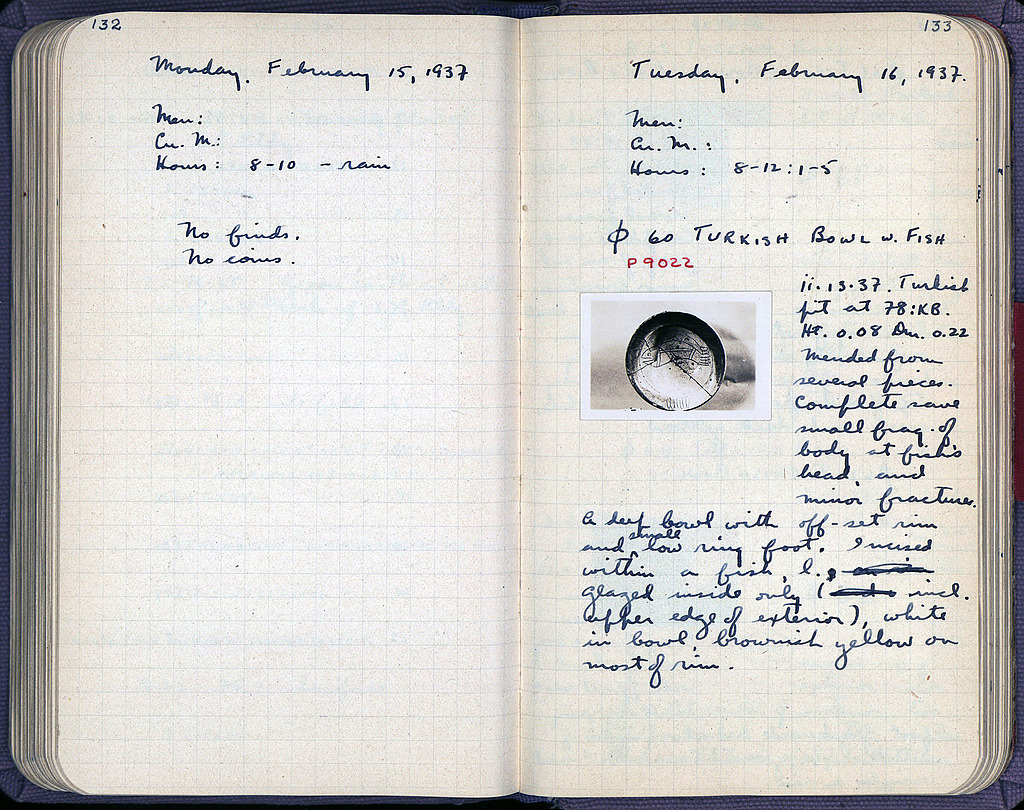 132
Monday, February 15, 1937
Men:
Cu. M.:
Hours: 8-10 - rain
No finds.
No coins.
133
Tuesday, February 16, 1937.
Men:
Cu. M.:
Hours: 8-12:1-5
Φ 60 TURKISH BOWL W. FISH
P 9022
ii.13.37. Turkish
pit at 78:KB.
HT. 0.08 Dm. 0.22
Mended from
several pieces.
Complete save
small frag. of
body at fish's
head, and
minor fractures.
A deep bowl with off-set rim
and small low ring foot. Incised
within a fish, l.,
Glazed inside only ( incl.
upper edge of exterior), white
in bowl, brownish yellow on
most of rim.